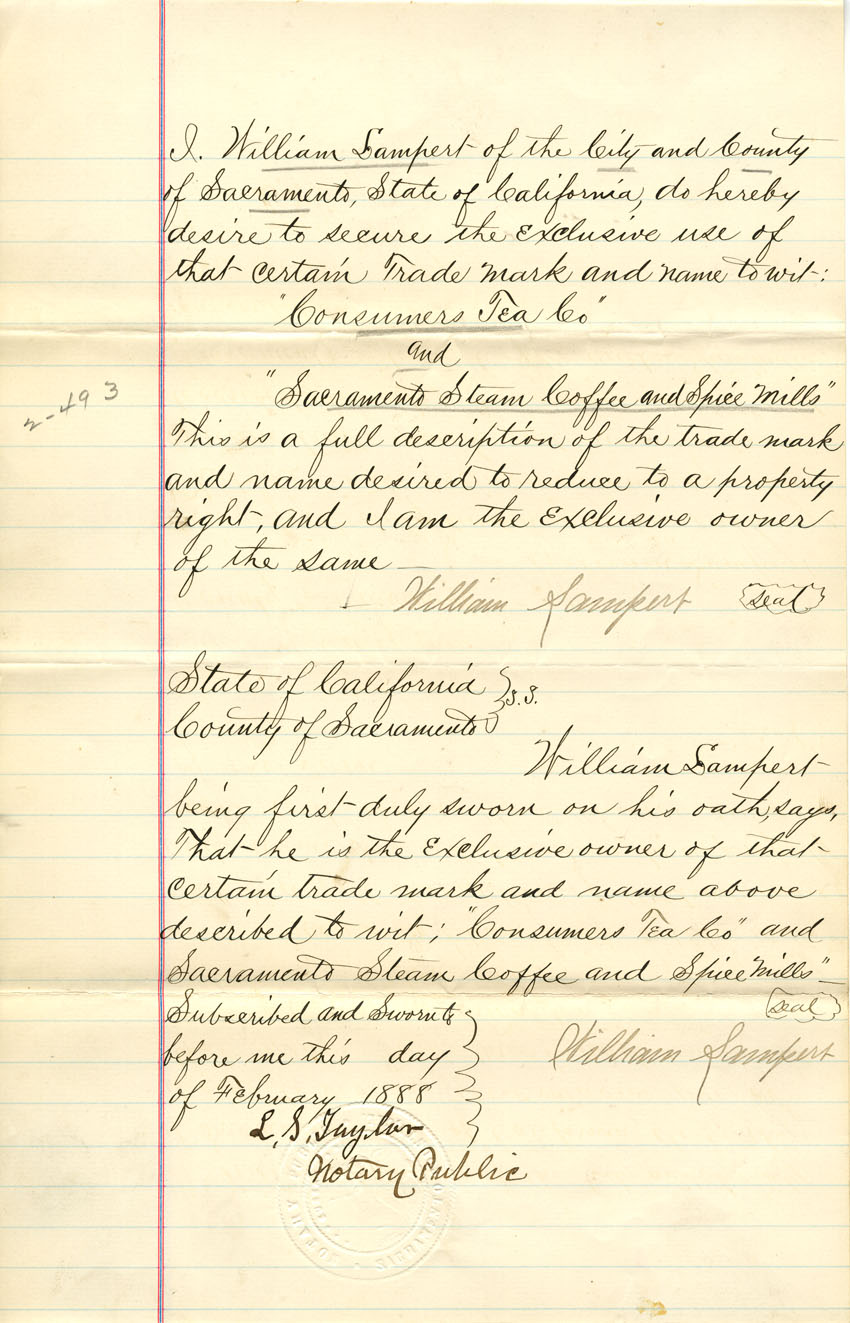 I. William Lampert of the City and County
of Sacramento, State of California, do hereby
desire to secure the Exclusive use of
that certain Trade mark and name to wit:
"Consumers Tea Co"
and
"Sacramento Steam Coffee and Spice Mills"
2-493
This is a full description of the trade mark
and name desired to reduce to a property
right, and I am the Exclusive owner
of the same —
William Lampert seal
State of California } S.S.
County of Sacramento
William Lampert
being first duly sworn on his oath, says,
That he is the Exclusive owner of that
certain trade mark and name above
described to wit; "Consumers Tea Co" and
Sacramento Steam Coffee and Spice Mills" —
seal
Subscribed and Sworn to
before me this day
William Lampert
of February 1888
L. S. Taylor
Notary Public